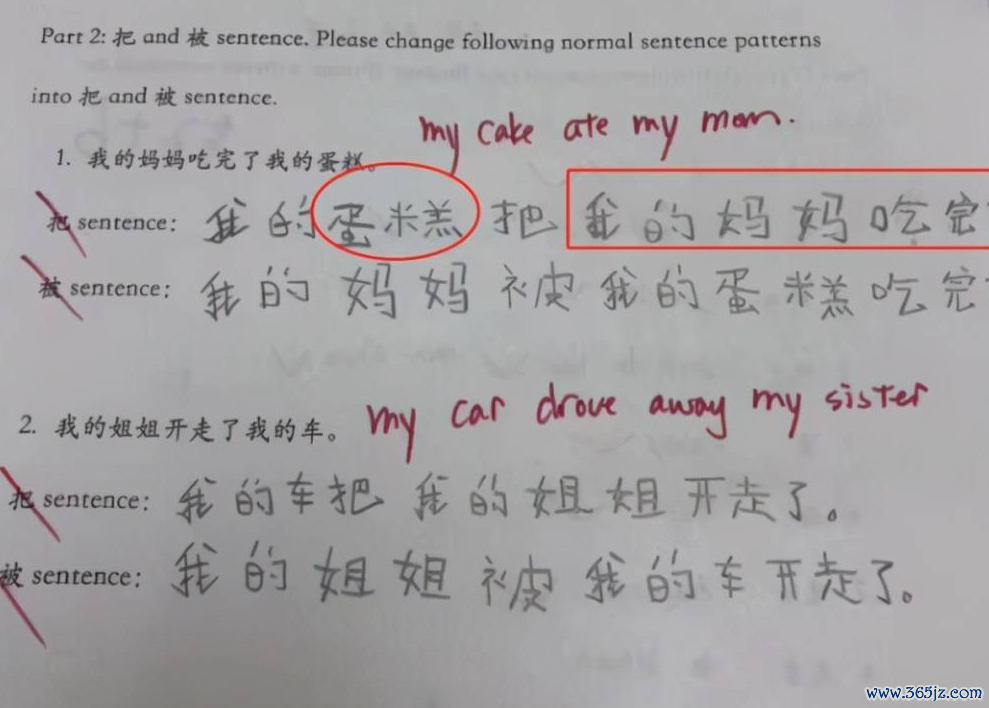 Part 2: 把 and 被 sentence. Please change following normal sentence patterns
into 把 and 被 sentence.
my cake ate my mom.
1. 我的妈妈吃完了我的蛋糕。
把 sentence: 我的蛋糕把我的妈妈吃完
被 sentence: 我的妈妈被我的蛋糕吃完
my car drove away my sister
2. 我的姐姐开走了我的车。
把 sentence: 我的车把我的姐姐开走了。
被 sentence: 我的姐姐被我的车开走了。
www.365jz.com